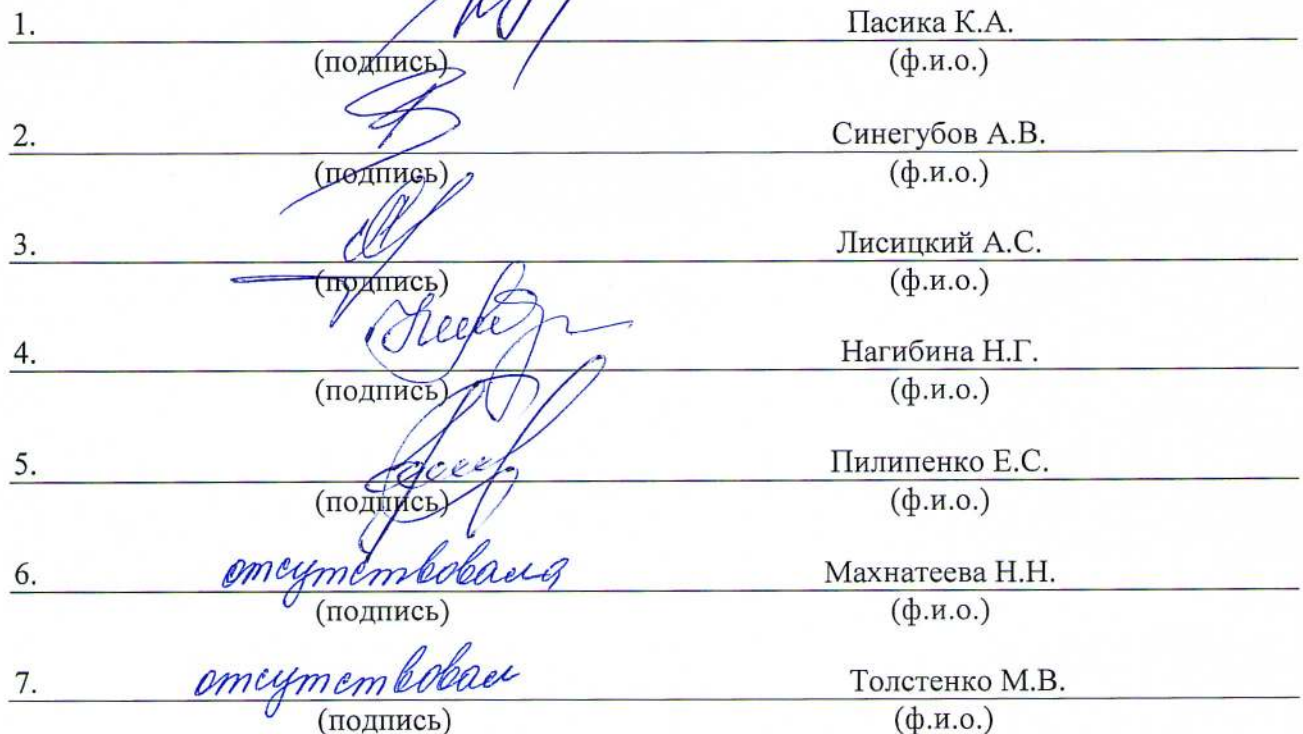 1. Пасика К.А.
(подпись) (ф.и.о.)
2. Синегубов А.В.
(подпись) (ф.и.о.)
3. Лисицкий А.С.
(подпись) (ф.и.о.)
4. Нагибина Н.Г.
(подпись) (ф.и.о.)
5. Пилипенко Е.С.
(подпись) (ф.и.о.)
6. отсутствовала Махнатеева Н.Н.
(подпись) (ф.и.о.)
7. отсутствовал Толстенко М.В.
(подпись) (ф.и.о.)